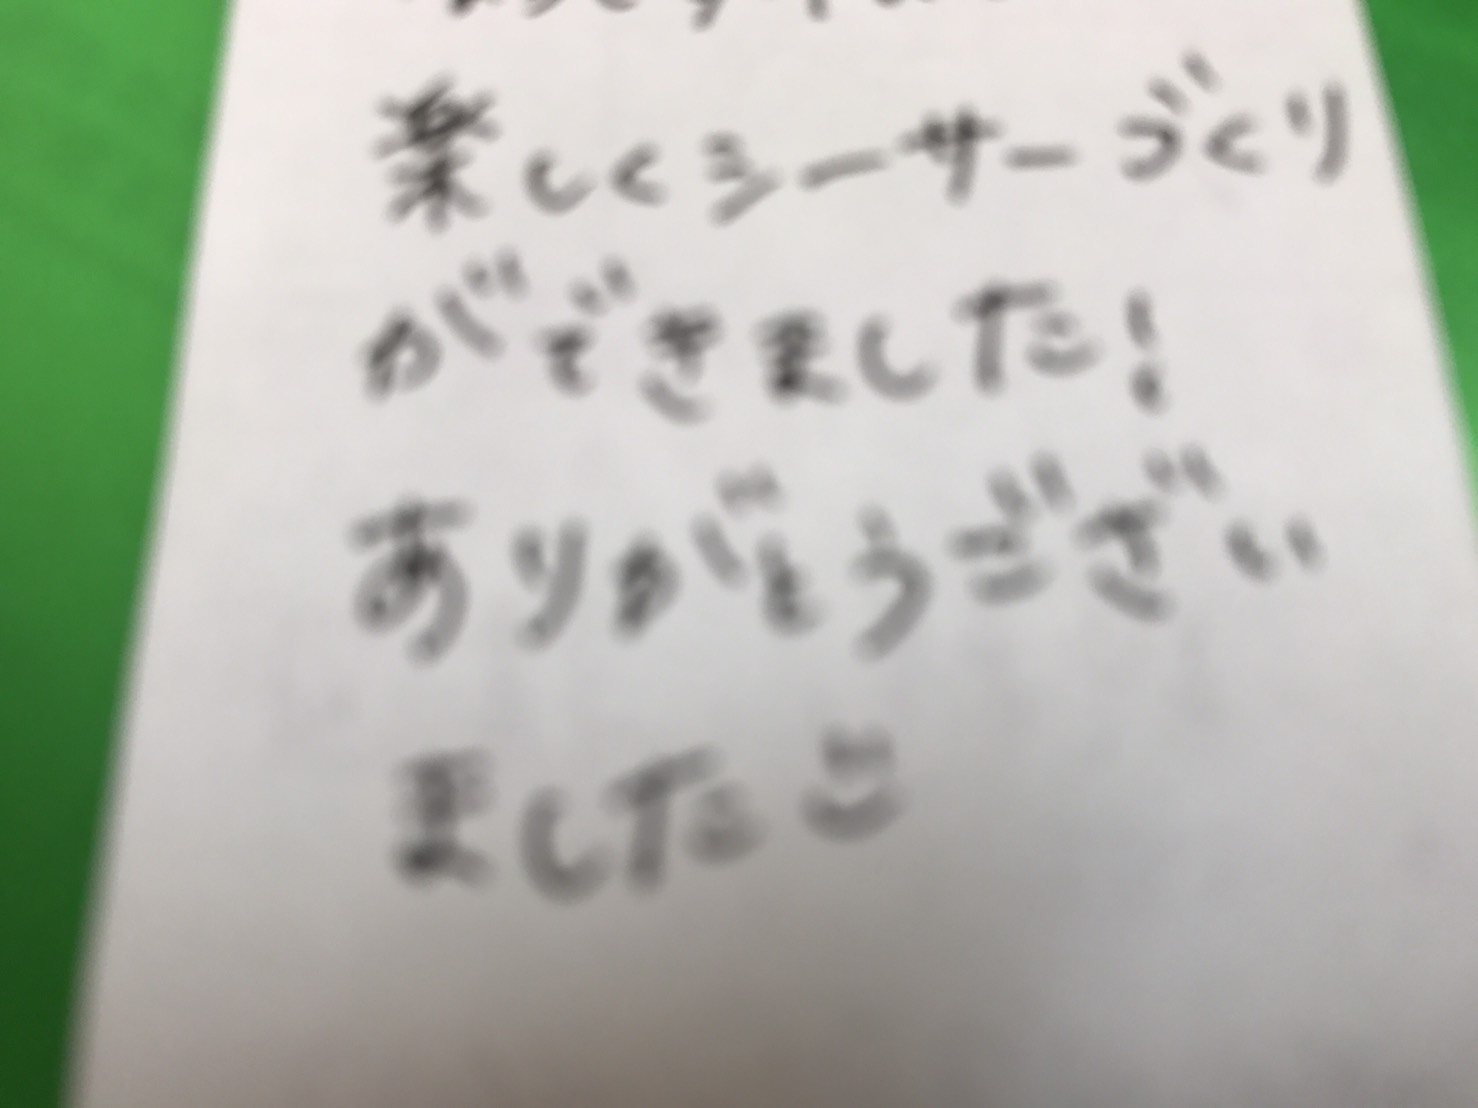 楽しくシーサーづくり
ができました!
ありがとうござい
ました